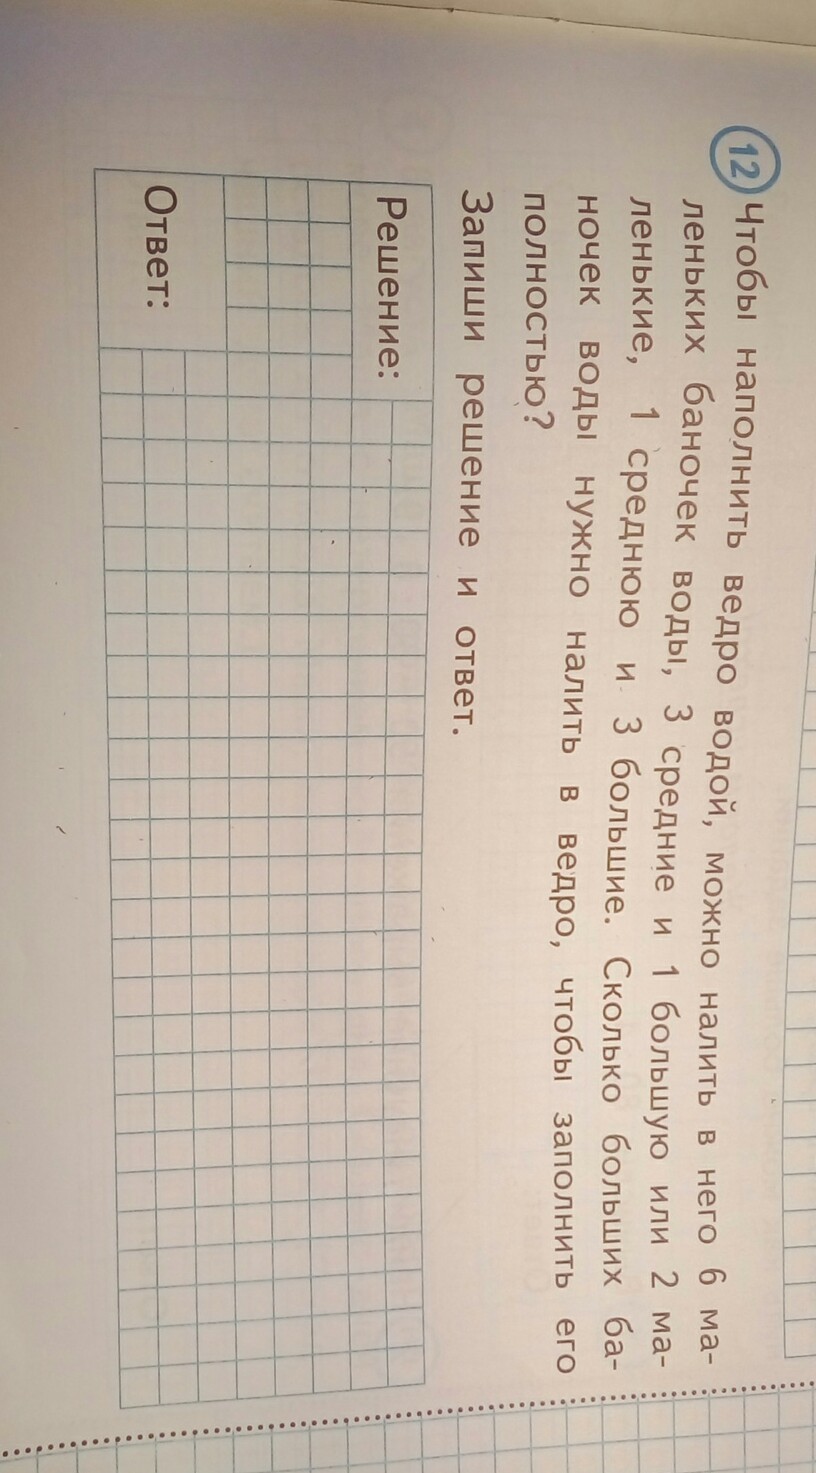 12 Чтобы наполнить ведро водой, можно налить в него 6 ма-
леньких баночек воды, 3 средние и 1 большую или 2 ма-
ленькие, 1 среднюю и 3 большие. Сколько больших ба-
ночек воды нужно налить в ведро, чтобы заполнить его
полностью?
Запиши решение и ответ.
Решение:
Ответ: